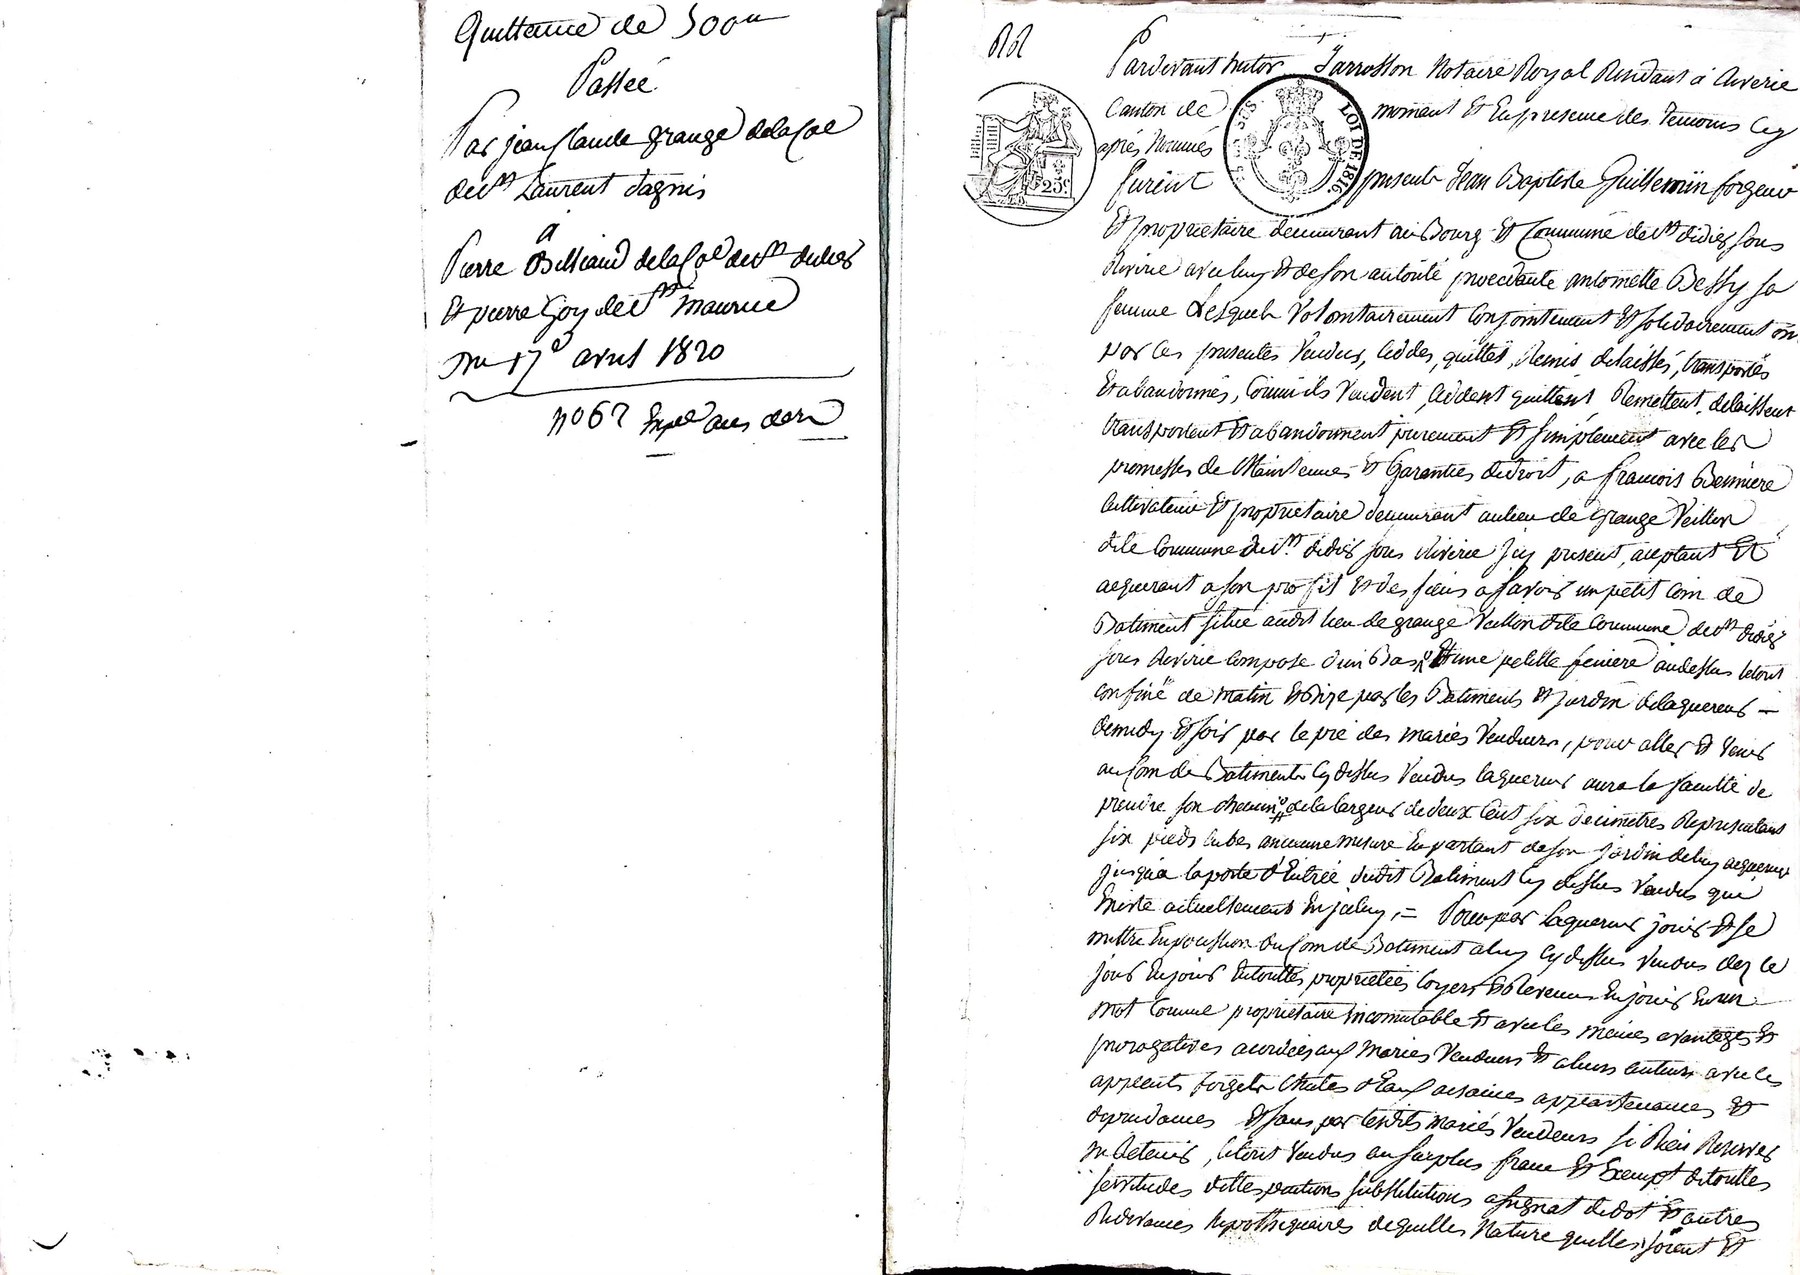 Quittance de 500#
Passée
Par jean Claude grange de la Coe
de St Laurent dagnis
a
Pierre Billiaud de la Coe de St didier
Et pierre Goy de St Maurice
Du 17e avril 1820
no 62 Expé aus
Pardevant Me Jarrosson Notaire Royal Residant à Riverie
Canton de mornant Et En presence des Temoins Cy
après Nommés
furent presents Jean Baptiste Guillermin forgeur
Et proprietaire demeurant au Bourg Et Commune de St didier sous
Riverie avec luy Et de son autorité procedante antoinette Bessy sa
femme Lesquels Volontairement Conjointement Et solidairement on
par Ces presentes Vendus, Cèddés, quittés, Remis, delaissés, transportés
Et abandonnés, Comme ils Vendent, Cèddent quittent, Remettent, delaissent
transportent Et abandonnent purement Et simplement avec les
promesses de Maintenues Et Garanties de droit, a francois Bernière
Cultivateur Et proprietaire demeurant au lieu de grange Veillon
dite Commune de St didier sous Riverie Icy present, aceptant Et
aequerant a son profit Et des siens a savoir un petit Coin de
Batiment situé audit lieu de grange Veillon dite Commune de St didier
sous Riverie Compose d'un Bas Et une petitte feniere au dessus le tout
confiné de matin Et bize par les Batiments Et Jardin de laquereur —
de midy Et soir par le pré des mariés Vendeurs, pour aller Et Venir
au Coin de Batiments Cy dessus Vendus laquereur aura la faculté de
prendre son chemin de la largeur de deux Cent six decimetres Representans
six pieds Cubes ancienne mesure En partant de son Jardin de luy aequereur
jusqu'a la porte d'Entrée dudit Batiment Cy dessus Vendus qui
Existe actuellement En jceluy, = Pour par laquereur jouir Et se
mettre En pocession du Coin de Batiment a luy Cy dessus Vendus dez ce
jour En jouir En touttes proprietées loyers Et Revenus En jouir En un
Mot Comme proprietaire incomutable Et avec les mêmes avantages Et
prorogatives acordées aux Mariés Vendeurs Et a leurs auteurs avec les
appcents forgets Chutes d'Eaux aisances appartenances Et
dependances Et sans par lesdits mariés Vendeurs si Rien Reserver
ni Retenir, le tout Vendus au surplus franc Et Exempt de touttes
servitudes dettes pactions substitutions assignat de dot Et autres
Redevances hypothequaires de quelles Nature quelles soient Et